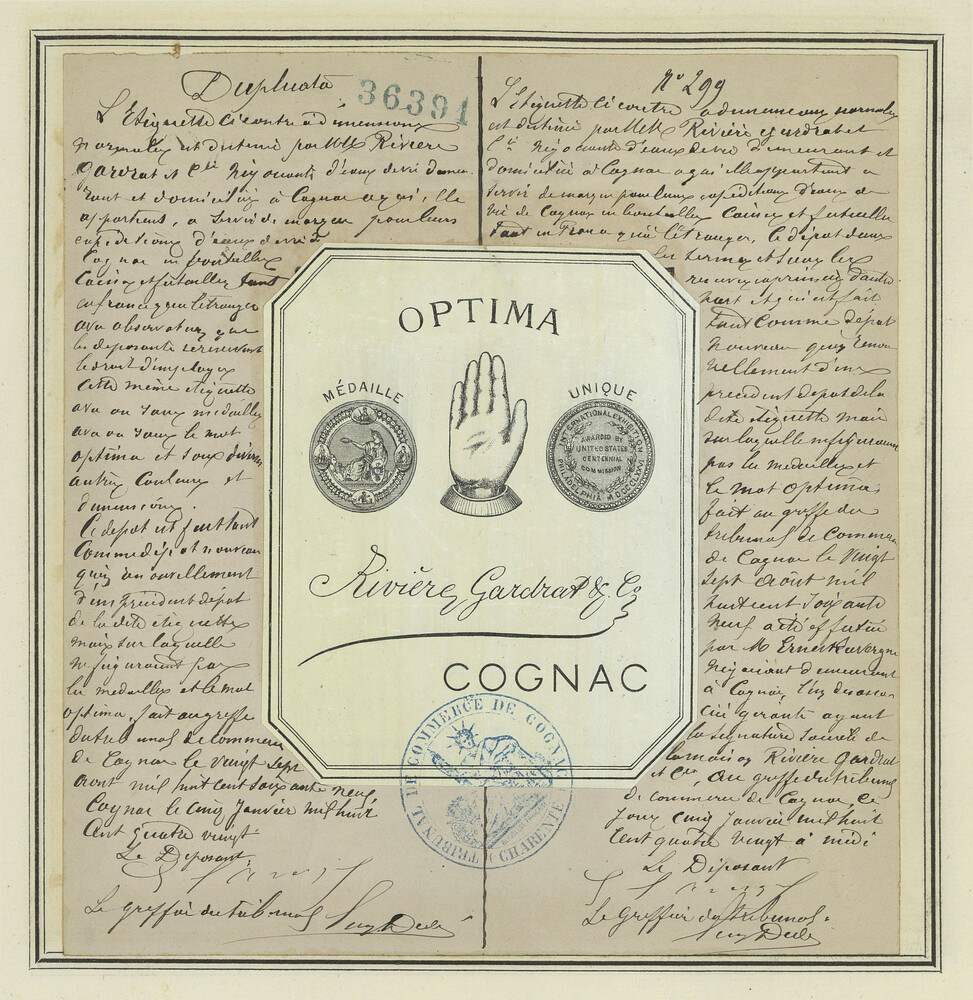 Duplicata
36391
L'Etiquette ci contre a dimensions
normales est destinée par MM Rivière
Gardrat et Cie négociants d'eaux de vie demeu-
rant et domiciliés à Cognac à qui elle
appartient, a servir de marque pour leurs
expeditions d'eaux de vie de
Cognac en bouteilles
Caisses et futailles tant
en france que l'étranger
avec observation que
les déposants se réservent
le droit d'employer
cette même étiquette
avec ou sans médailles
avec ou sans le mot
optima et sous diverses
autres Couleurs et
dimensions.
Ce dépôt est fait tant
Comme dépôt nouveau
qu'en renouvellement
d'un précédent dépôt
de la dite étiquette
mais sur laquelle
ne figuraient pas
les médailles et le mot
optima, fait au greffe
du tribunal de commerce
de Cognac le vingt sept
août mil huit cent soixante neuf
Cognac le cinq Janvier mil huit
Cent quatre vingt
Le Déposant
Le greffier du tribunal
N° 299
L'étiquette ci contre a dimensions normales
est destinée par MM Rivière Gardrat et
Cie négociants d'eaux de vie demeurant et
domiciliés à Cognac a qui elle appartient a
servir de marque pour leurs expéditions d'eaux de
vie de Cognac en bouteilles Caisses et futailles
tant en France qu'à l'étranger, le dépôt dans
les termes et sous les
réserves exprimées d'autre
part et qui est fait
tant Comme dépôt
nouveau qu'en renou
vellement d'un
précédent dépôt de la
dite étiquette mais
sur laquelle ne figuraient
pas les médailles et
le mot optima
fait au greffe du
tribunal de Commerce
de Cognac le vingt
sept août mil
huit cent soixante
neuf a été effectué
par M Ernest
négociant demeurant
à Cognac, l'un des asso-
ciés gérants ayant
la signature sociale de
la maison Rivière Gardrat
et Cie, au greffe du tribunal
de commerce de Cognac, ce
jour cinq Janvier mil huit
Cent quatre vingt à midi
Le Déposant
Le Greffier du tribunal
OPTIMA
MÉDAILLE
UNIQUE
INTERNATIONAL EXHIBITION
AWARDED BY
UNITED STATES
CENTENNIAL
COMMISSION
PHILADELPHIA MDCCCLXXVI
Rivière, Gardrat & Co
COGNAC
TRIBUNAL DE COMMERCE DE COGNAC
(CHARENTE)